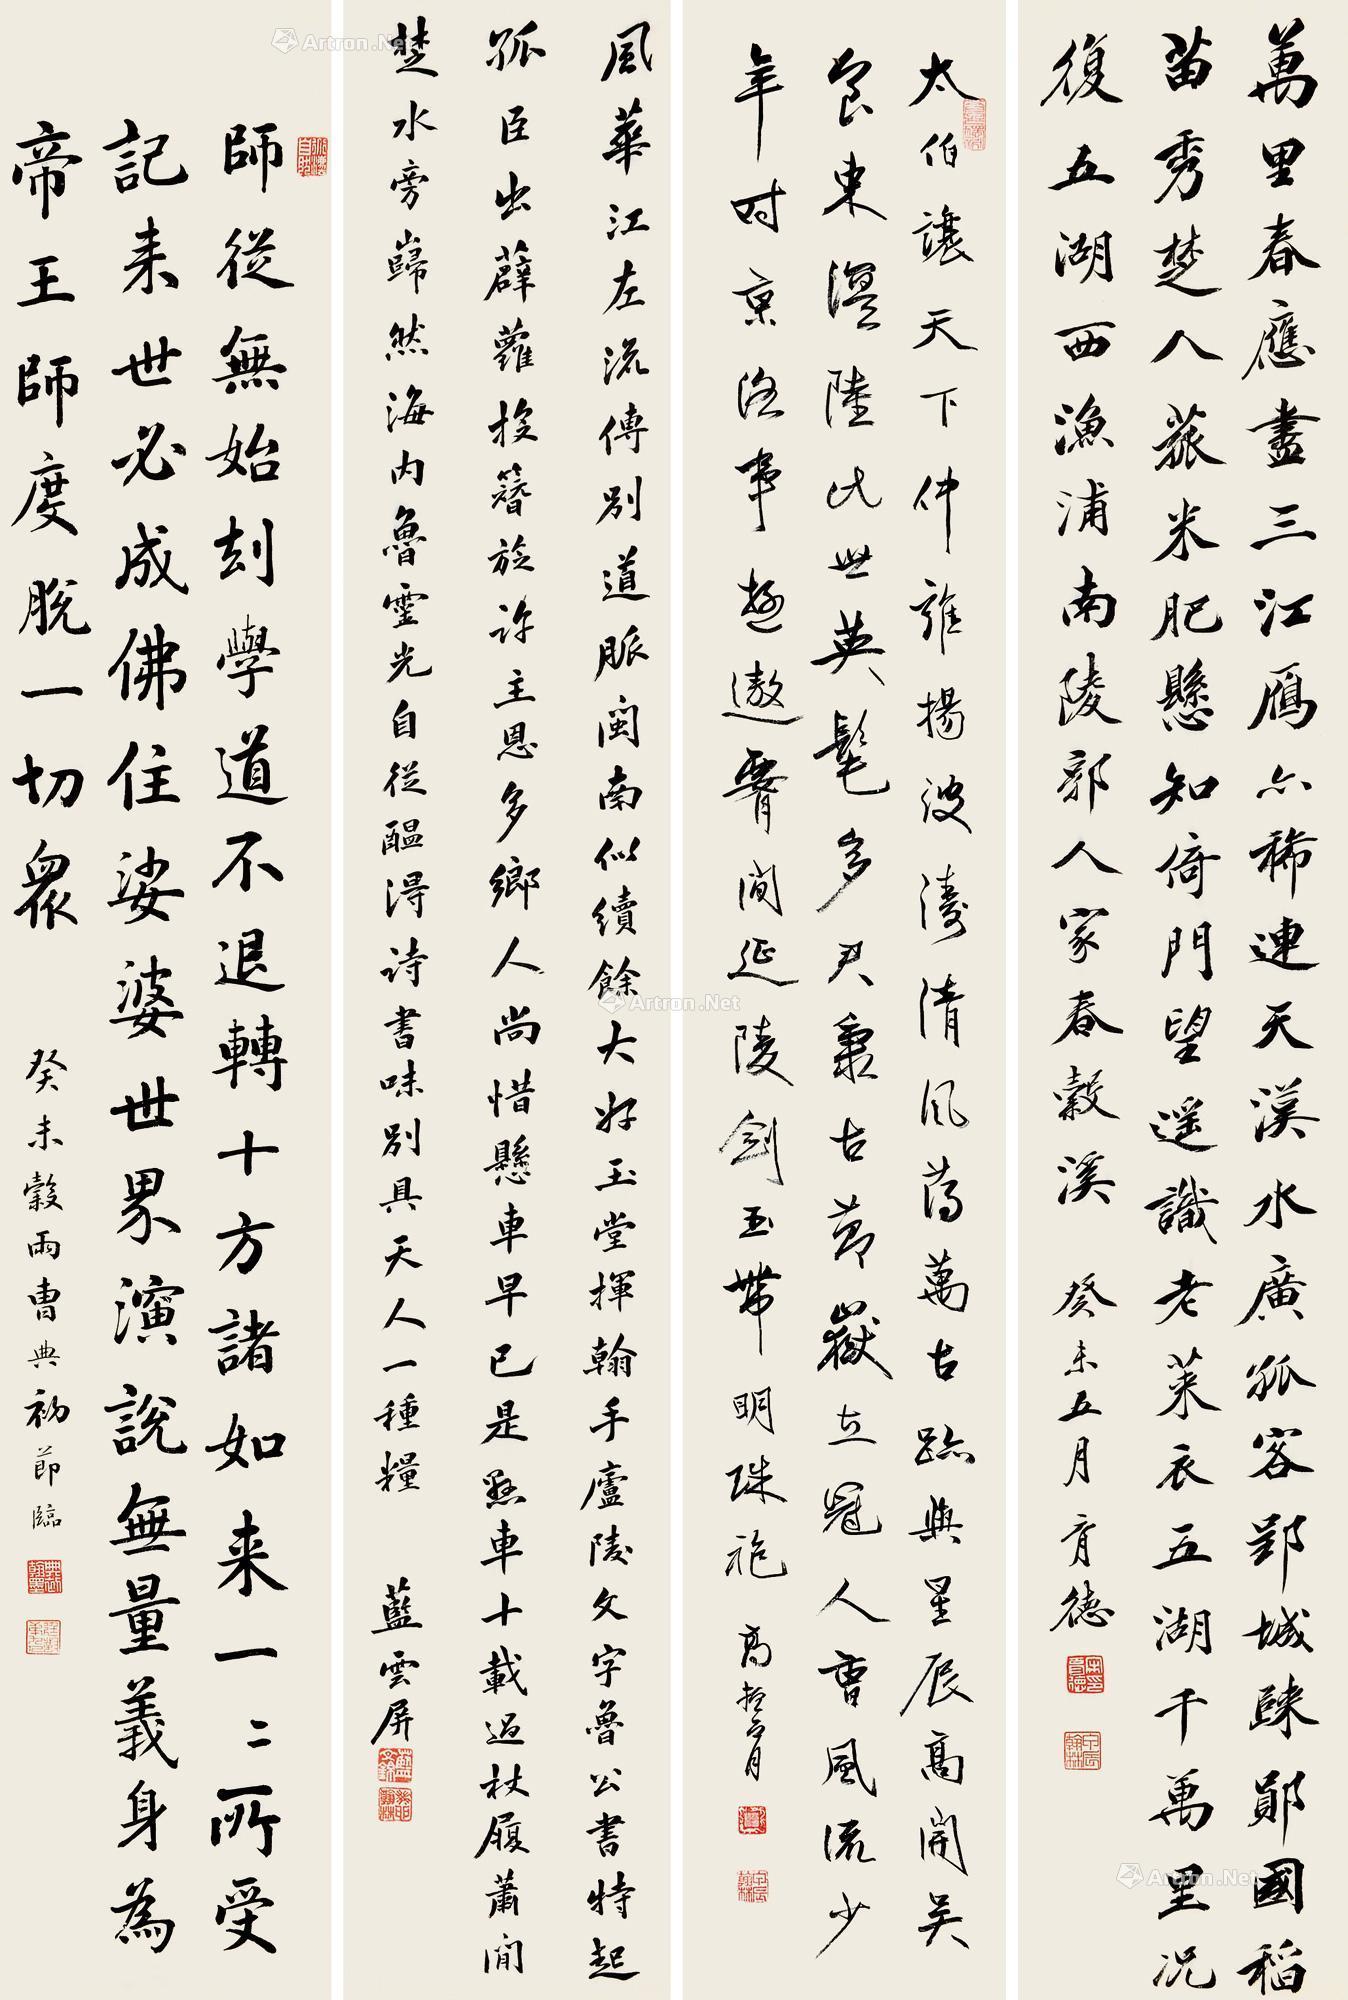 萬里春應盡三江雁亦稀連天漢水廣孤客郢城歸鄖國稻
苗秀楚人菰米肥懸知倚門望遥識老萊衣五湖千萬里况
復五湖西漁浦南陵郭人家春穀溪
癸未五月育德
太伯讓天下仲雍揚波濤清風蕩萬古跡與星辰高開吴
食東溟陸氏世英髦多君秉古節嶽立冠人曹風流少
年时京洛事遊遨腰間延陵劍玉帶明珠袍
風華江左流傳别道脈閩南似續餘大好玉堂揮翰手廬陵文字魯公書特起
孤臣出薜蘿投簪旋許主恩多鄉人尚惜懸車早已是懸車十載過杖履蕭閒
楚水旁巋然海内魯靈光自從醖得詩書味别具天人一種糧
藍雲屏
師從無始刦學道不退轉十方諸如来一二所受
記未世必成佛住娑婆世界演說無量義身為
帝王師度脱一切衆
癸未穀雨曹典初節臨
Artron.Net
Artron.Net
Artron.Net
Artron.Net